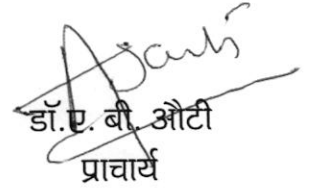 डॉ.ए. बी. औटी
प्राचार्य